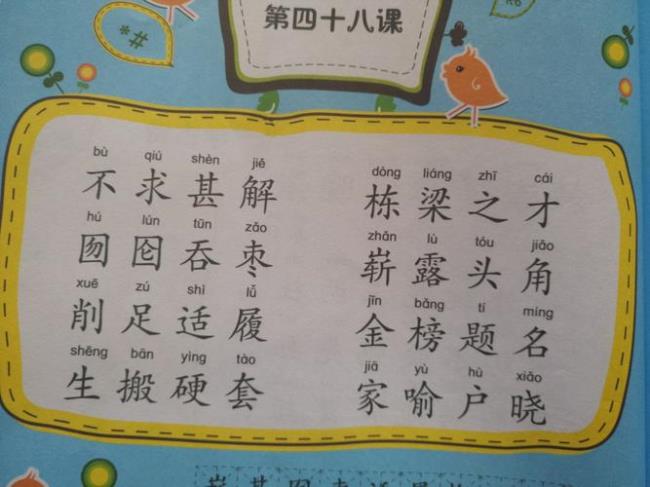 第四十八课
bù qiú shèn jiě
不求甚解
hú lún tūn zǎo
囫囵吞枣
xuē zú shì lǚ
削足适履
shēng bān yìng tào
生搬硬套
dòng liáng zhī cái
栋梁之才
zhǎn lù tóu jiǎo
崭露头角
jīn bǎng tí míng
金榜题名
jiā yù hù xiǎo
家喻户晓